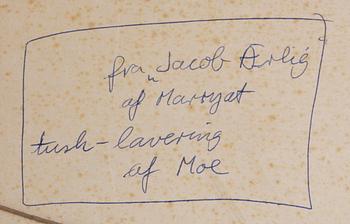 fra "Jacob Ærlig
af Marryat
tush-lavering
af Moe